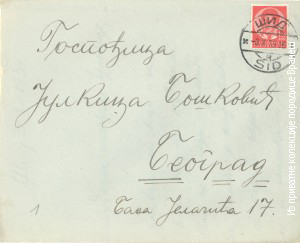 ШИД
ŠID
Госпођица
Јулкица Бошковић
Београд
Баба Јелачића 17.
1
Из приватне колекције породице Брашић